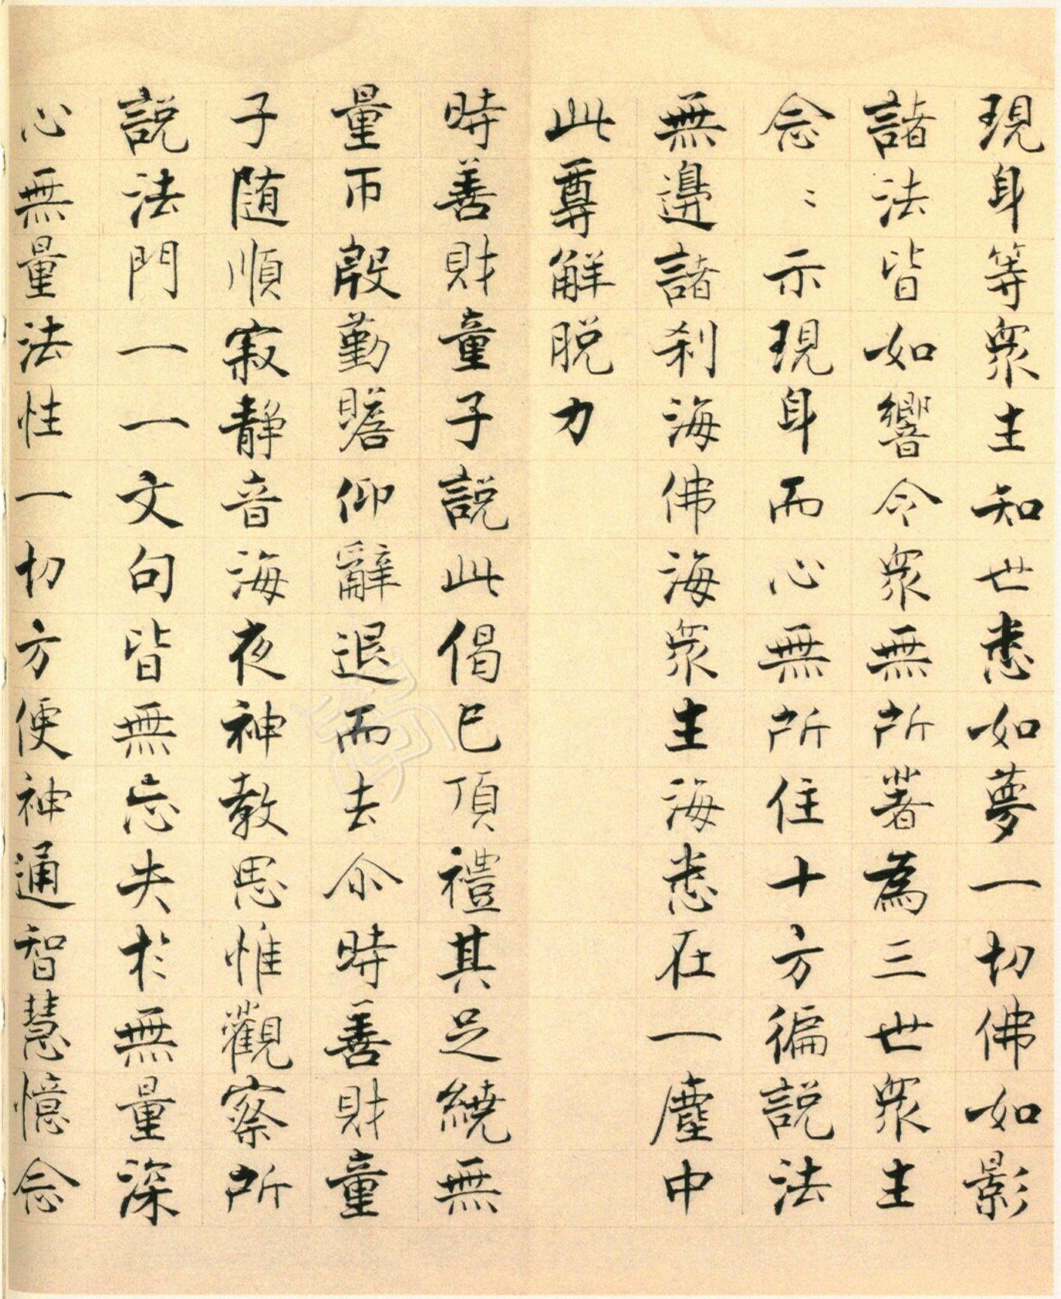 現身等衆生知世悉如夢一切佛如影
諸法皆如響令衆無所著為三世衆生
念〻示現身而心無所住十方徧說法
無邊諸刹海佛海衆生海悉在一塵中
此尊解脱力
時善財童子說此偈已頂禮其足繞無
量帀殷勤瞻仰辭退而去尒時善財童
子随順寂静音海夜神教思惟觀察所
說法門一一文句皆無忘失於無量深
心無量法性一切方便神通智慧憶念